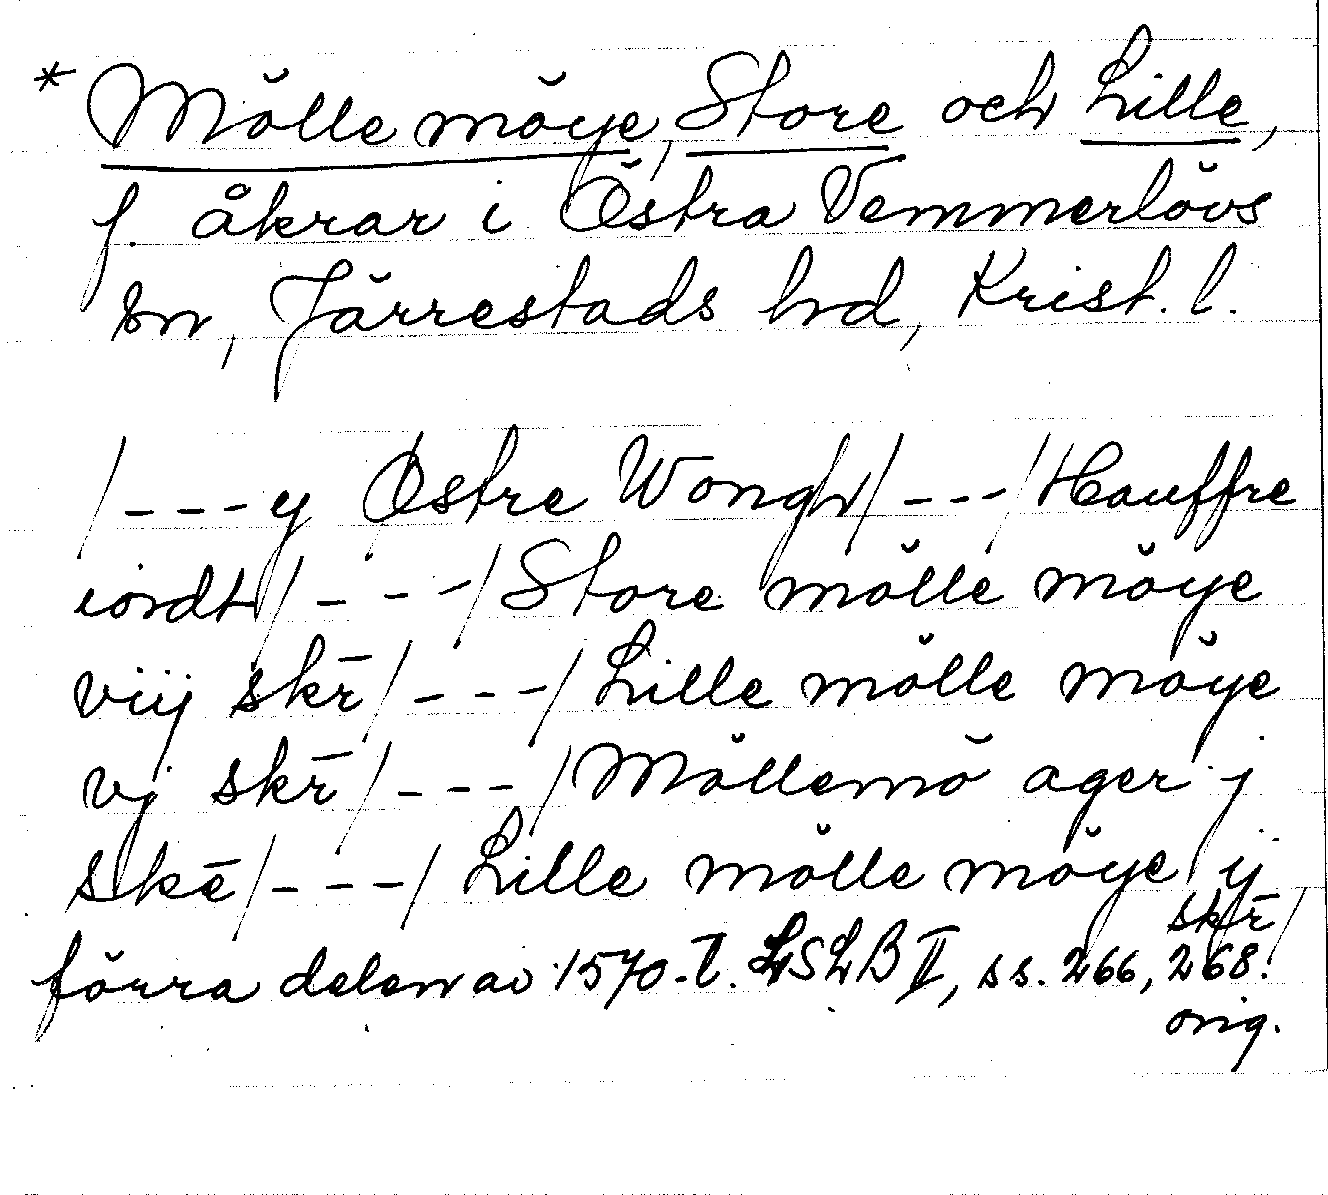 * Mölle möye, Store och Lille,
f. åkrar i Östra Vemmerlövs
sn, Järrestads hd, Krist. l.
/---y Østre Wongh/---/Hauffre
iordt/---/Store mölle möye
viij skr̄/---/Lille mölle möye
vj skr̄/---/Möllemö ager j
skē/---/Lille mölle möye ij
skr̄/
förra delen av 1570-t. LSLB II, ss. 266, 268.
orig.